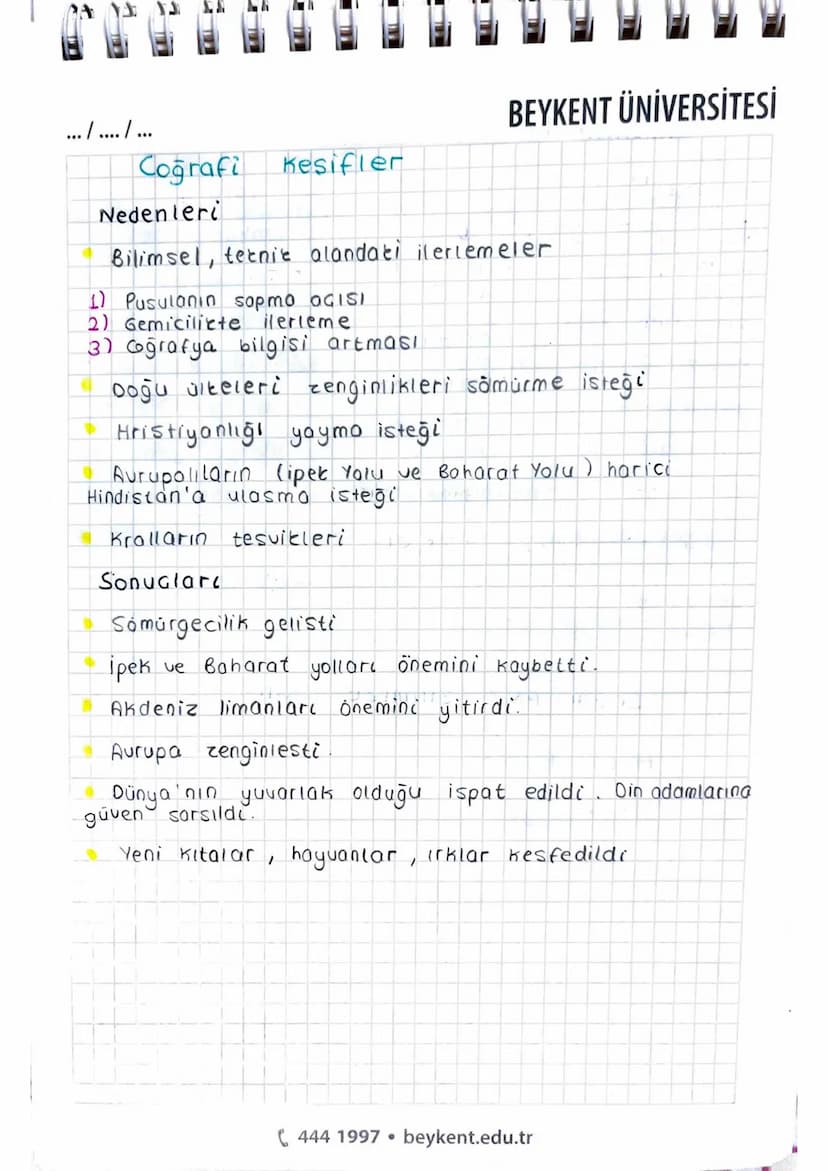 BEYKENT ÜNİVERSİTESİ
... / .... / ...
Coğrafi Kesifler
Nedenleri
Bilimsel, teknik alandaki ilerlemeler
1) Pusulanın sapma acısı
2) Gemicilikte ilerleme
3) Coğrafya bilgisi artması
Doğu ülkeleri zenginlikleri sömürme isteği
Hristiyanlığı yayma isteği
Avrupalıların (ipek Yolu ve Baharat Yolu) harici
Hindistan'a ulasma isteği
Kralların tesvikleri
Sonucları
Sömürgecilik gelisti
İpek ve Baharat yolları önemini kaybetti.
Akdeniz limanları önemini yitirdi.
Avrupa zenginlesti.
Dünya'nın yuvarlak olduğu ispat edildi. Din adamlarına
güven sarsıldı.
Yeni kıtalar, hayvanlar, ırklar kesfedildi
444 1997 • beykent.edu.tr